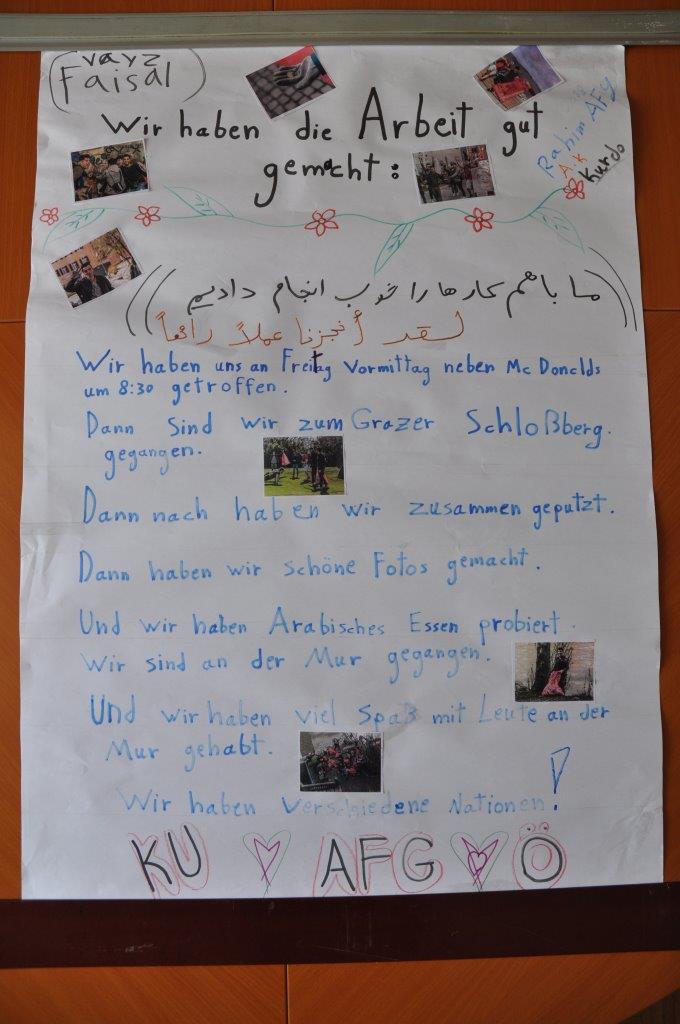 Fayz
Faisal
Rahim AFG
A.K
Kurdo
Wir haben die Arbeit gut
gemacht:
ما باهم کارها را خوب انجام دادیم
لقد أنجزنا عملاً رائعاً
Wir haben uns an Freitag Vormittag neben Mc Donalds
um 8:30 getroffen.
Dann sind wir zum Grazer Schloßberg.
gegangen.
Dann nach haben wir zusammen geputzt.
Dann haben wir schöne Fotos gemacht.
Und wir haben Arabisches Essen probiert.
Wir sind an der Mur gegangen.
Und wir haben viel Spaß mit Leute an der
Mur gehabt.
Wir haben verschiedene Nationen!
KU AFG Ö